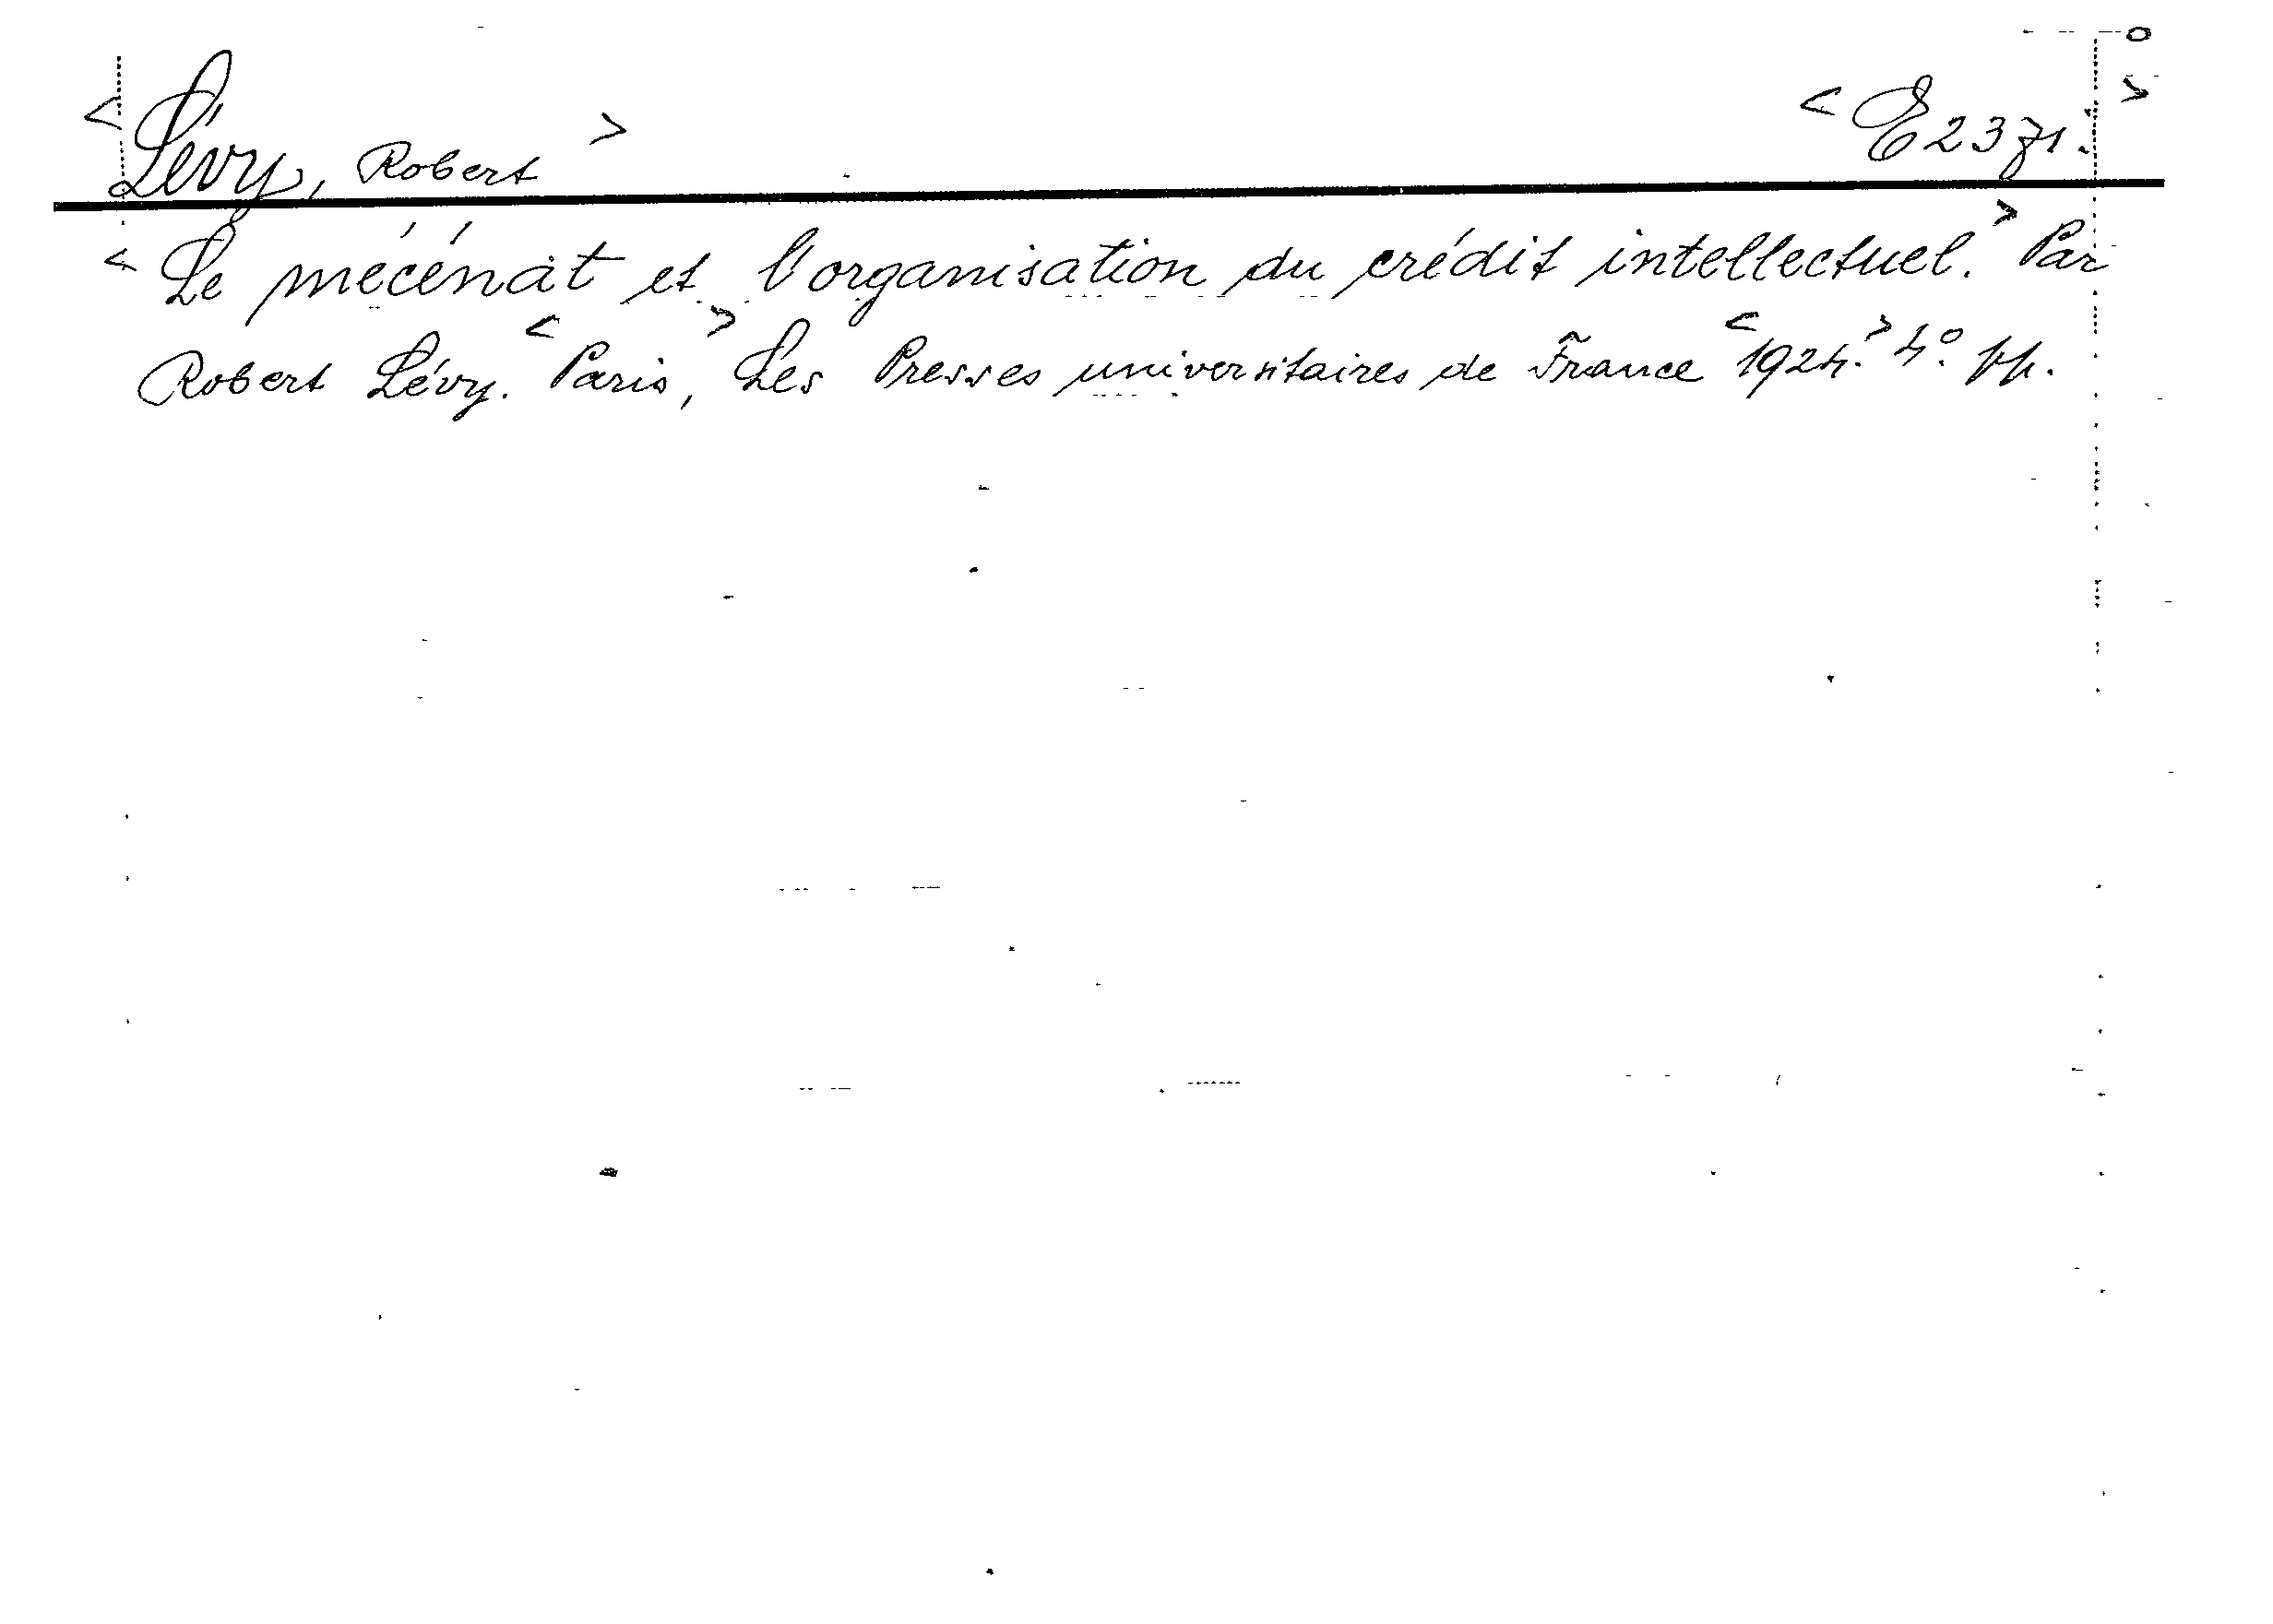 <Lévy, Robert> <E2371.>
<Le mécénat et l'organisation du crédit intellectuel.> Par
Robert Lévy. <Paris,> Les Presses universitaires de France <1924.> 4° pp.